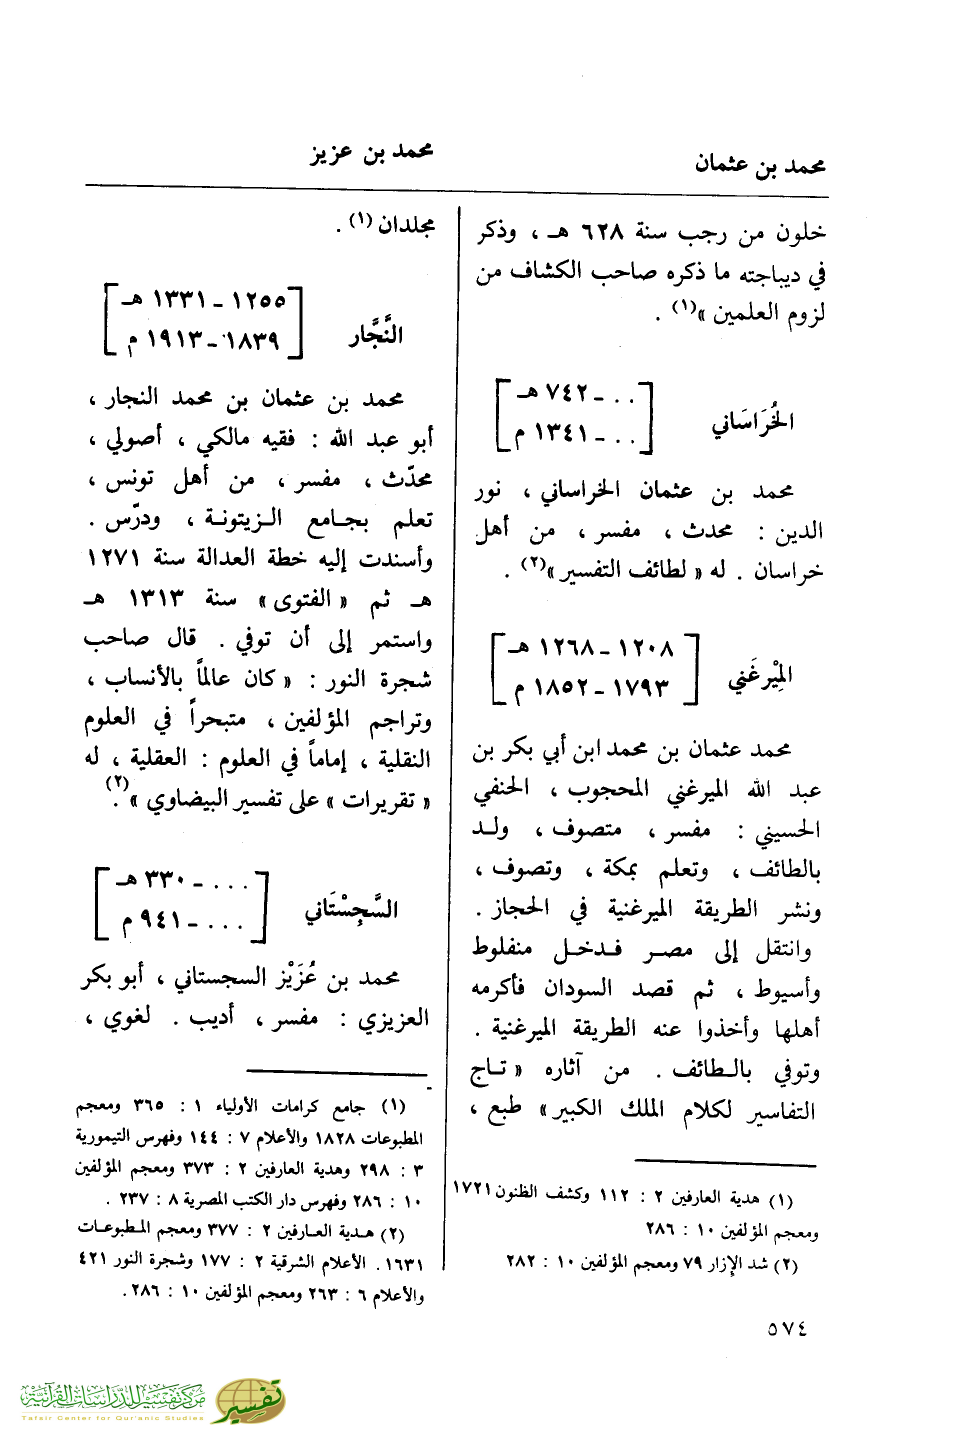 محمد بن عثمان
محمد بن عزيز
خلون من رجب سنة ٦٢٨ هـ ، وذكر
في ديباجته ما ذكره صاحب الكشاف من
لزوم العلمين »(١) .
الخُرَاسَاني
[ . . . ـ ٧٤٢ هـ
. . . ـ ١٣٤١ م ]
محمد بن عثمان الخراساني ، نور
الدين : محدث ، مفسر ، من أهل
خراسان . له « لطائف التفسير »(٢) .
المِيْرغَني
[ ١٢٠٨ ـ ١٢٦٨ هـ
١٧٩٣ ـ ١٨٥٢ م ]
محمد عثمان بن محمد ابن أبي بكر بن
عبد الله الميرغني المحجوب ، الحنفي
الحسيني : مفسر ، متصوف ، ولد
بالطائف ، وتعلم بمكة ، وتصوف ،
ونشر الطريقة الميرغنية في الحجاز .
وانتقل إلى مصر فدخل منفلوط
وأسيوط ، ثم قصد السودان فأكرمه
أهلها وأخذوا عنه الطريقة الميرغنية .
وتوفي بالطائف . من آثاره « تاج
التفاسير لكلام الملك الكبير» طبع ،
(١) هدية العارفين ٢ : ١١٢ وكشف الظنون ١٧٢١
ومعجم المؤلفين ١٠ : ٢٨٦
(٢) شد الإزار ٧٩ ومعجم المؤلفين ١٠ : ٢٨٢
مجلدان (١) .
النَّجَّار
[ ١٢٥٥ ـ ١٣٣١ هـ
١٨٣٩ ـ ١٩١٣ م ]
محمد بن عثمان بن محمد النجار ،
أبو عبد الله : فقيه مالكي ، أصولي ،
محدّث ، مفسر ، من أهل تونس ،
تعلم بجامع الزيتونة ، ودرّس .
وأسندت إليه خطة العدالة سنة ١٢٧١
هـ ثم «الفتوى» سنة ١٣١٣ هـ
واستمر إلى أن توفي . قال صاحب
شجرة النور : « كان عالماً بالأنساب ،
وتراجم المؤلفين ، متبحراً في العلوم
النقلية ، إماماً في العلوم : العقلية ، له
« تقريرات » على تفسير البيضاوي »(٢).
السَّجِسْتَاني
[ . . . ـ ٣٣٠ هـ
. . . ـ ٩٤١ م ]
محمد بن عُزَيْز السجستاني ، أبو بكر
العزيزي : مفسر ، أديب . لغوي ،
(١) جامع كرامات الأولياء ١ : ٣٦٥ ومعجم
المطبوعات ١٨٢٨ والأعلام ٧ : ١٤٤ وفهرس التيمورية
٣ : ٢٩٨ وهدية العارفين ٢ : ٣٧٣ ومعجم المؤلفين
١٠ : ٢٨٦ وفهرس دار الكتب المصرية ٨ : ٢٣٧ .
(٢) هدية العارفين ٢ : ٣٧٧ ومعجم المطبوعات
١٦٣١. الأعلام الشرقية ٢ : ١٧٧ وشجرة النور ٤٢١
والأعلام ٦ : ٢٦٣ ومعجم المؤلفين ١٠ : ٢٨٦ .
٥٧٤
مركز تفسير للدراسات القرآنية
Tafsir Center for Qur'anic Studies
تفسير